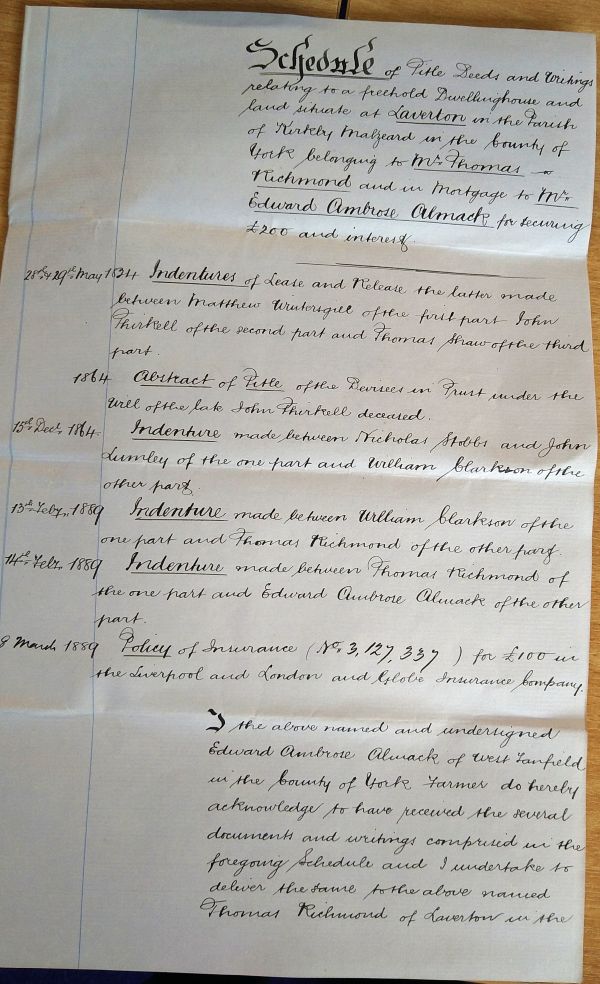 Schedule of Title Deeds and Writings
relating to a freehold Dwellinghouse and
land situate at Laverton in the Parish
of Kirkby Malzeard in the County of
York belonging to Mr. Thomas
Richmond and in Mortgage to Mr.
Edward Ambrose Almack for securing
£200 and interest.
28th & 29th May 1824 Indentures of Lease and Release the latter made
between Matthew Wintersgill of the first part John
Thirkell of the second part and Thomas Shaw of the third
part.
1864 Abstract of Title of the Devisees in Trust under the
Will of the late John Thirkell deceased.
15th Decr. 1864. Indenture made between Nicholas Stobbs and John
Lumley of the one part and William Clarkson of the
other part.
13th Feby. 1889 Indenture made between William Clarkson of the
one part and Thomas Richmond of the other part.
14th Feby. 1889 Indenture made between Thomas Richmond of
the one part and Edward Ambrose Almack of the other
part.
8 March 1889 Policy of Insurance (No. 3,127,337) for £100 in
the Liverpool and London and Globe Insurance Company.
I the above named and undersigned
Edward Ambrose Almack of West Tanfield
in the County of York Farmer do hereby
acknowledge to have received the several
documents and writings comprised in the
foregoing Schedule and I undertake to
deliver the same to the above named
Thomas Richmond of Laverton in the